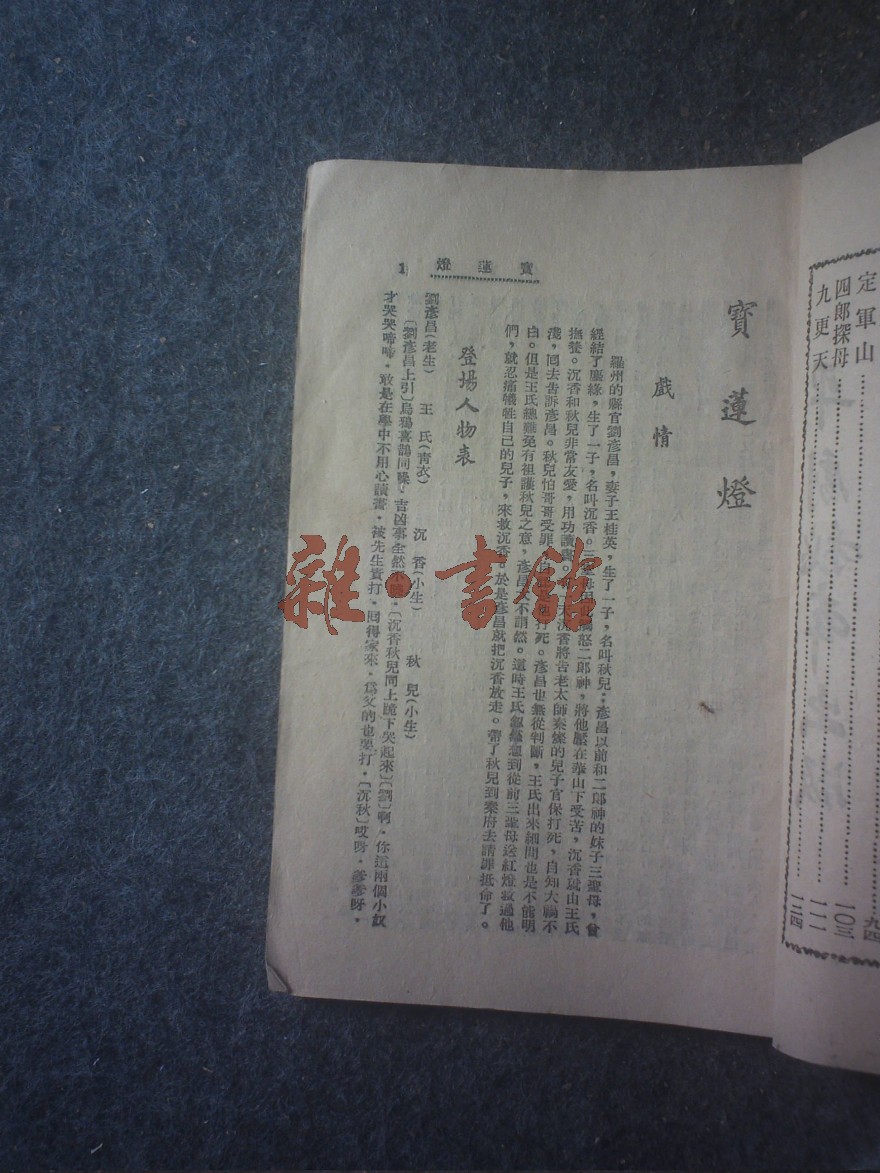 定軍山……九四
四郎探母……一〇三
九更天……一一一
一二四
寶蓮燈
戲情
羅州的縣官劉彥昌，妻子王桂英，生了一子，名叫秋兒；彥昌以前和二郎神的妹子三聖母，曾
經結了塵緣，生了一子，名叫沉香。三聖母因此觸怒二郎神，將他壓在華山下受苦，沉香就由王氏
撫養。沉香和秋兒非常友愛，用功讀書。有一天沉香將告老太師秦燦的兒子官保打死，自知大禍不
淺，回去告訴彥昌。秋兒怕哥哥受罪，自認打死。彥昌也無從判斷，王氏出來細問也是不能明
白。但是王氏總難免有袒護秋兒之意，彥昌大不謂然。這時王氏想到從前三聖母送紅燈救過他
們，就忍痛犧牲自己的兒子，來救沉香。於是彥昌就把沉香放走。帶了秋兒到秦府去請罪抵命了。
登場人物表
劉彥昌(老生) 王 氏(青衣) 沉 香(小生) 秋 兒(小生)
〔劉彥昌上引〕烏鴉喜鵲同噪，吉凶事全然不曉。〔沉香秋兒同上跪下哭起來〕〔劉〕啊，你這兩個小奴
才哭哭啼啼，敢是在學中不用心讀書，被先生責打，回得家來，爲父的也要打，〔沉秋〕哎呀，爹爹呀，
寶蓮燈
1
雜·書館